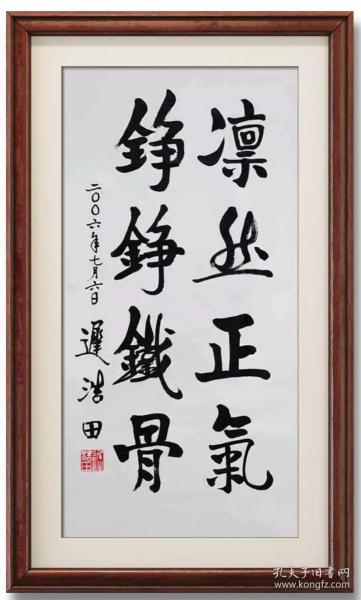 凛然正氣
錚錚鐵骨
二〇〇六年七月六日
遲浩田
孔夫子旧书网
www.kongfz.com